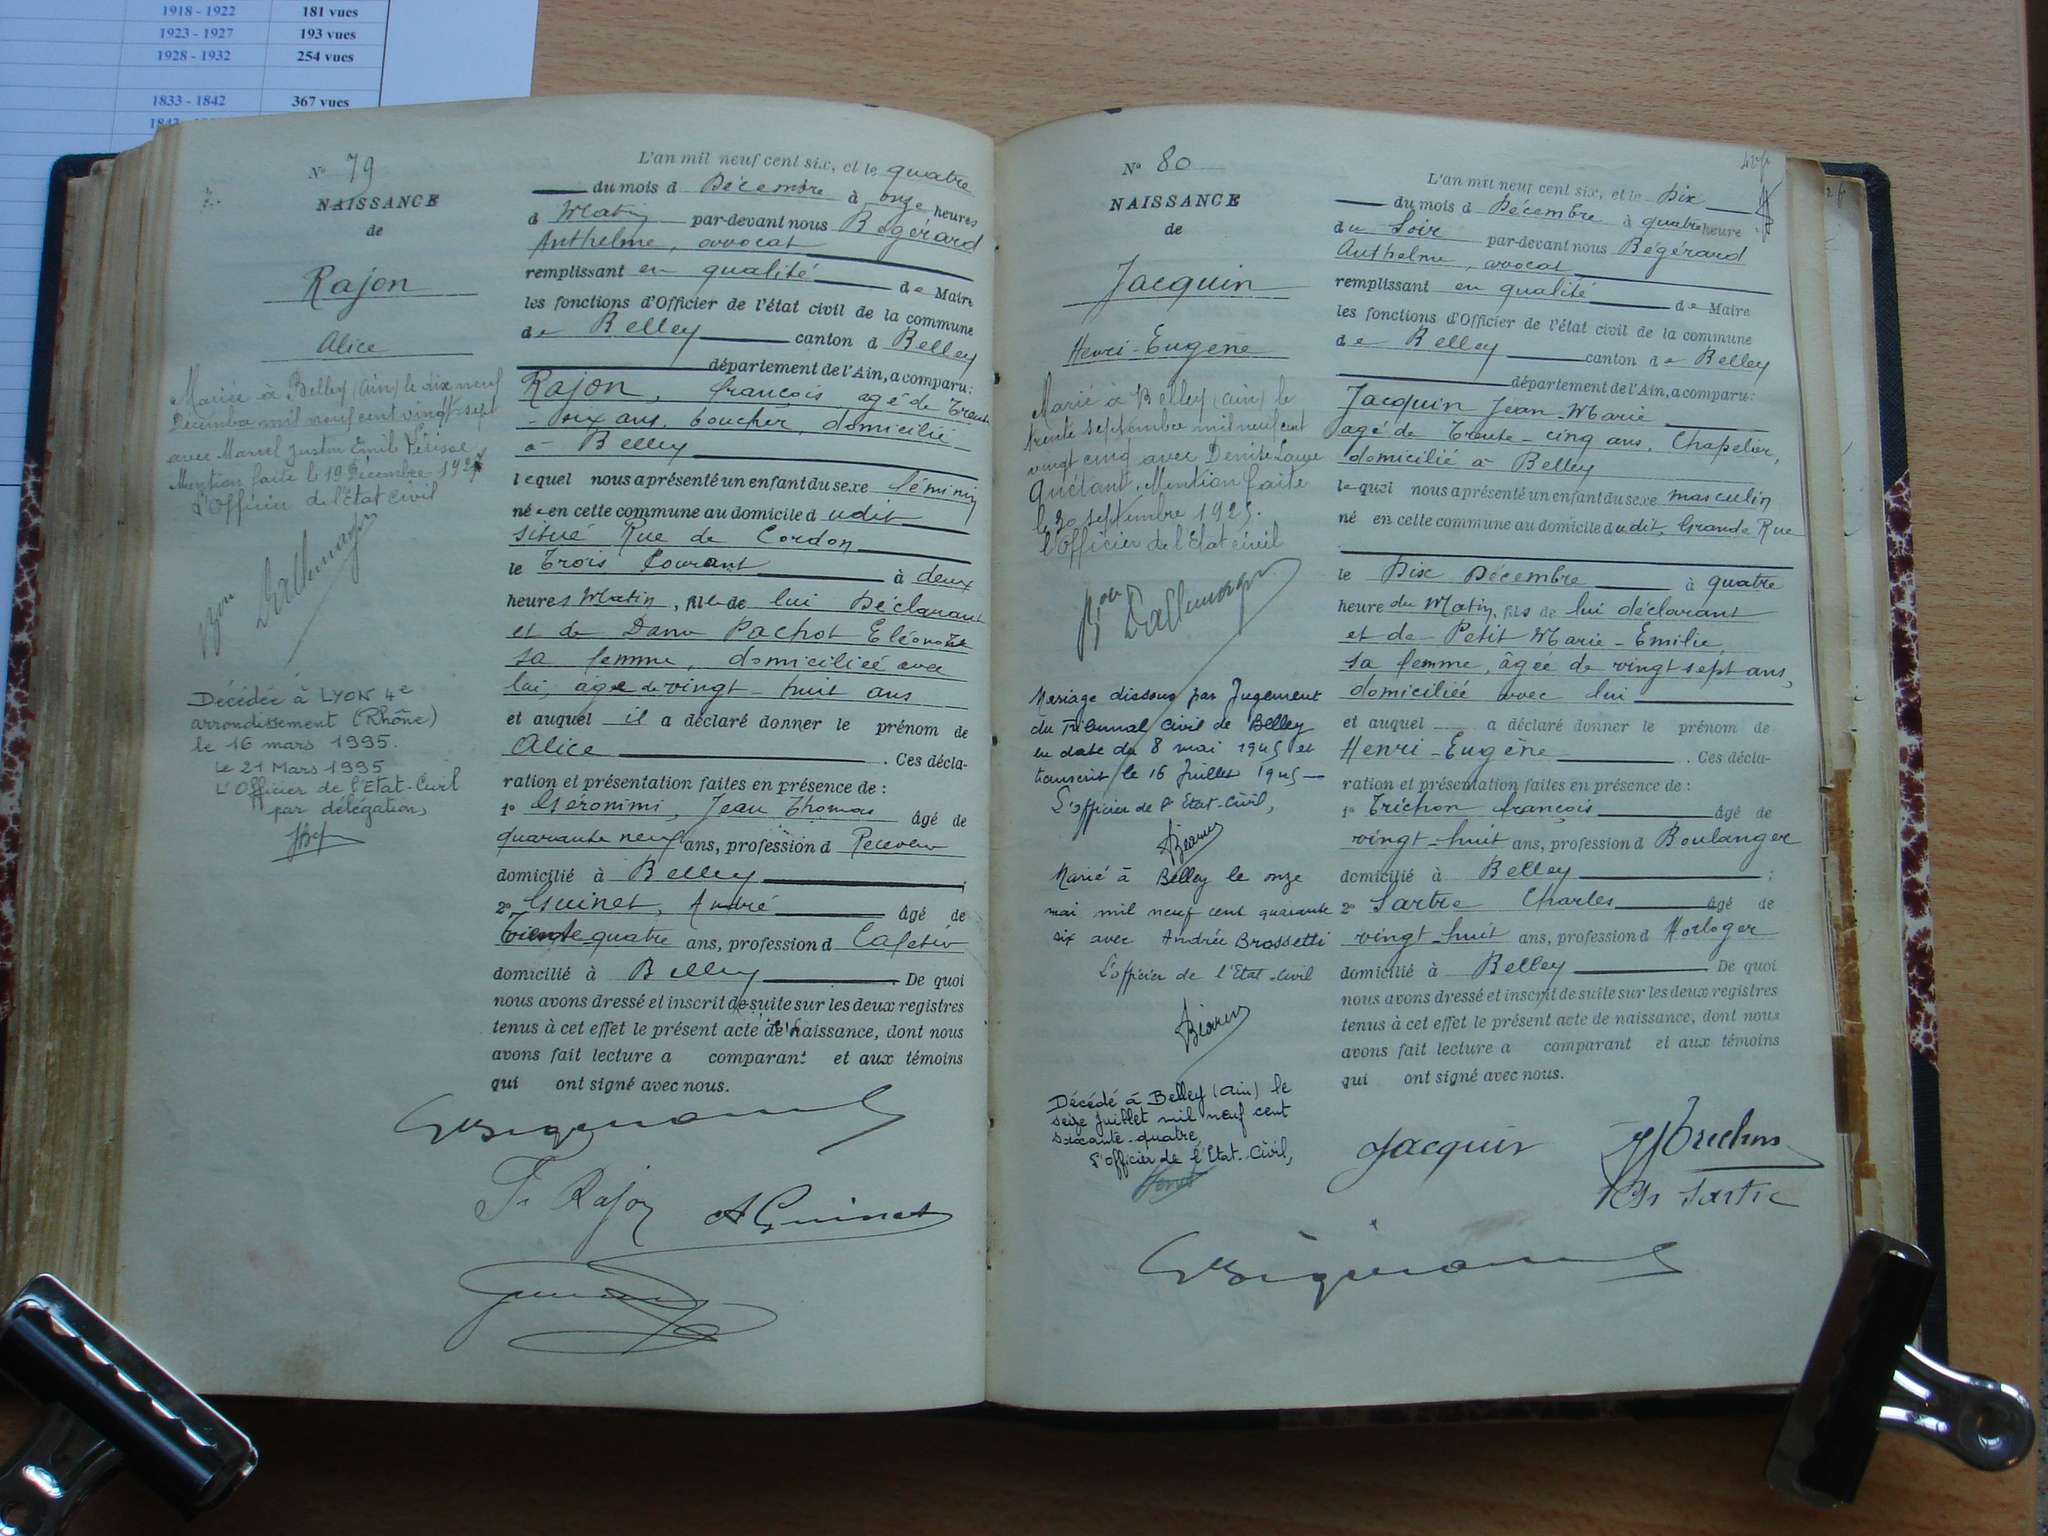 1918 - 1922 181 vues
1923 - 1927 193 vues
1928 - 1932 254 vues
1833 - 1842 367 vues
N° 79
NAISSANCE
de
Rajon
Alice
Mariée à Belley (Ain) le dix neuf
Décembre mil neuf cent vingt-sept
avec Marcel Justin Émile
Mention faite le 19 Décembre 1927
l'Officier de l'Etat Civil
Bon Dallemagne
Décédée à LYON 4e
arrondissement (Rhône)
le 16 mars 1995.
Le 21 Mars 1995
L'Officier de l'Etat-Civil
par délégation,
L'an mil neuf cent six, et le quatre
du mois d Décembre à onze heures
d Matin par-devant nous Bégérard
Anthelme, avocat
remplissant en qualité de Maire
les fonctions d'Officier de l'état civil de la commune
de Belley canton d Belley
département de l'Ain, a comparu:
Rajon, françois, agé de trente
-deux ans, boucher, domicilié
à Belley
lequel nous a présenté un enfant du sexe féminin
née en cette commune au domicile d udit
situé Rue de Cordon
le Trois Courant à deux
heures Matin, fille de lui Déclarant
et de Dame Pachot Eléonore
sa femme, domiciliée avec
lui, âgée de vingt-huit ans
et auquel il a déclaré donner le prénom de
Alice . Ces décla-
ration et présentation faites en présence de :
1° Géronimi, Jean Thomas âgé de
quarante neuf ans, profession d Receveur
domicilié à Belley ;
2° Guinet, André âgé de
trente quatre ans, profession d Cafetier
domicilié à Belley . De quoi
nous avons dressé et inscrit de suite sur les deux registres
tenus à cet effet le présent acte de naissance, dont nous
avons fait lecture a comparant et aux témoins
qui ont signé avec nous.
Fr Rajon A Guinet
N° 80
NAISSANCE
de
Jacquin
Henri-Eugène
Marié à Belley (ain) le
trente septembre mil neuf cent
vingt cinq avec Denise Laure
Quétant. Mention faite
le 30 septembre 1925.
l'Officier de l'Etat civil
Bon Dallemagne
Mariage dissous par Jugement
du Tribunal Civil de Belley
en date du 8 mai 1945 et
transcrit le 16 Juillet 1945
L'officier de l'Etat-Civil,
Marié à Belley le onze
mai mil neuf cent quarante
six avec Andrée Brossetti
L'officier de l'Etat-Civil
Décédé à Belley (ain) le
seize Juillet mil neuf cent
soixante-quatre
L'officier de l'Etat-Civil,
L'an mil neuf cent six, et le Dix
du mois d Décembre à quatre heure
du Soir par-devant nous Bégérard
Anthelme, avocat
remplissant en qualité de Maire
les fonctions d'Officier de l'état civil de la commune
de Belley canton de Belley
département de l'Ain, a comparu:
Jacquin Jean-Marie
agé de trente-cinq ans, Chapelier,
domicilié à Belley
lequel nous a présenté un enfant du sexe masculin
né en cette commune au domicile dudit, Grande Rue
le Dix Décembre à quatre
heure du Matin, fils de lui déclarant
et de Petit Marie-Emilie
sa femme, âgée de vingt sept ans,
domiciliée avec lui
et auquel a déclaré donner le prénom de
Henri-Eugène . Ces décla-
ration et présentation faites en présence de :
1° Trichon françois âgé de
vingt-huit ans, profession d Boulanger
domicilié à Belley ;
2° Sartre Charles âgé de
vingt-huit ans, profession d Horloger
domicilié à Belley . De quoi
nous avons dressé et inscrit de suite sur les deux registres
tenus à cet effet le présent acte de naissance, dont nous
avons fait lecture a comparant et aux témoins
qui ont signé avec nous.
Jacquin
Ch Sartre